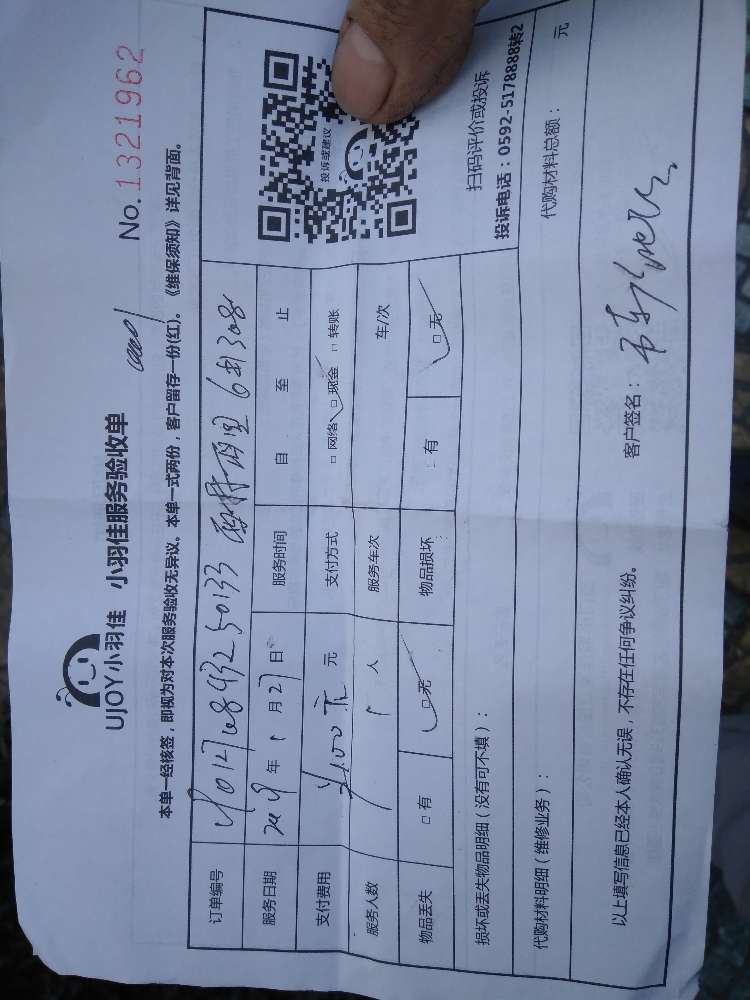 UJOY小羽佳 小羽佳服务验收单
No.1321962
本单一经核签，即视为对本次服务验收无异议。本单一式两份，客户留存一份(红)。《维保须知》详见背面。
订单编号
服务日期 年 1 月 27 日 服务时间 自 至 止
支付费用 元 支付方式 □网络 □现金 □转账
服务人数 1 人 服务车次 车/次
物品丢失 □有 □无 物品损坏 □有 □无
投诉或建议
扫码评价或投诉
投诉电话：0592-5178888转2
损坏或丢失物品明细（没有可不填）：
代购材料明细（维修业务）： 代购材料总额： 元
以上填写信息已经本人确认无误，不存在任何争议纠纷。 客户签名：